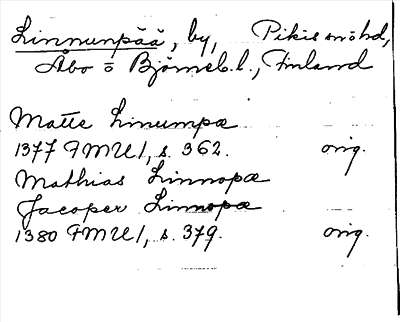 Linnunpää, by, Pikis snöhd,
Åbo o Björneb. l., Finland
Matte Linumpæ
1377 FMU I, s. 362. orig.
Mathias Linnopæ
Jacoper Linnopæ
1380 FMU I, s. 379. orig.